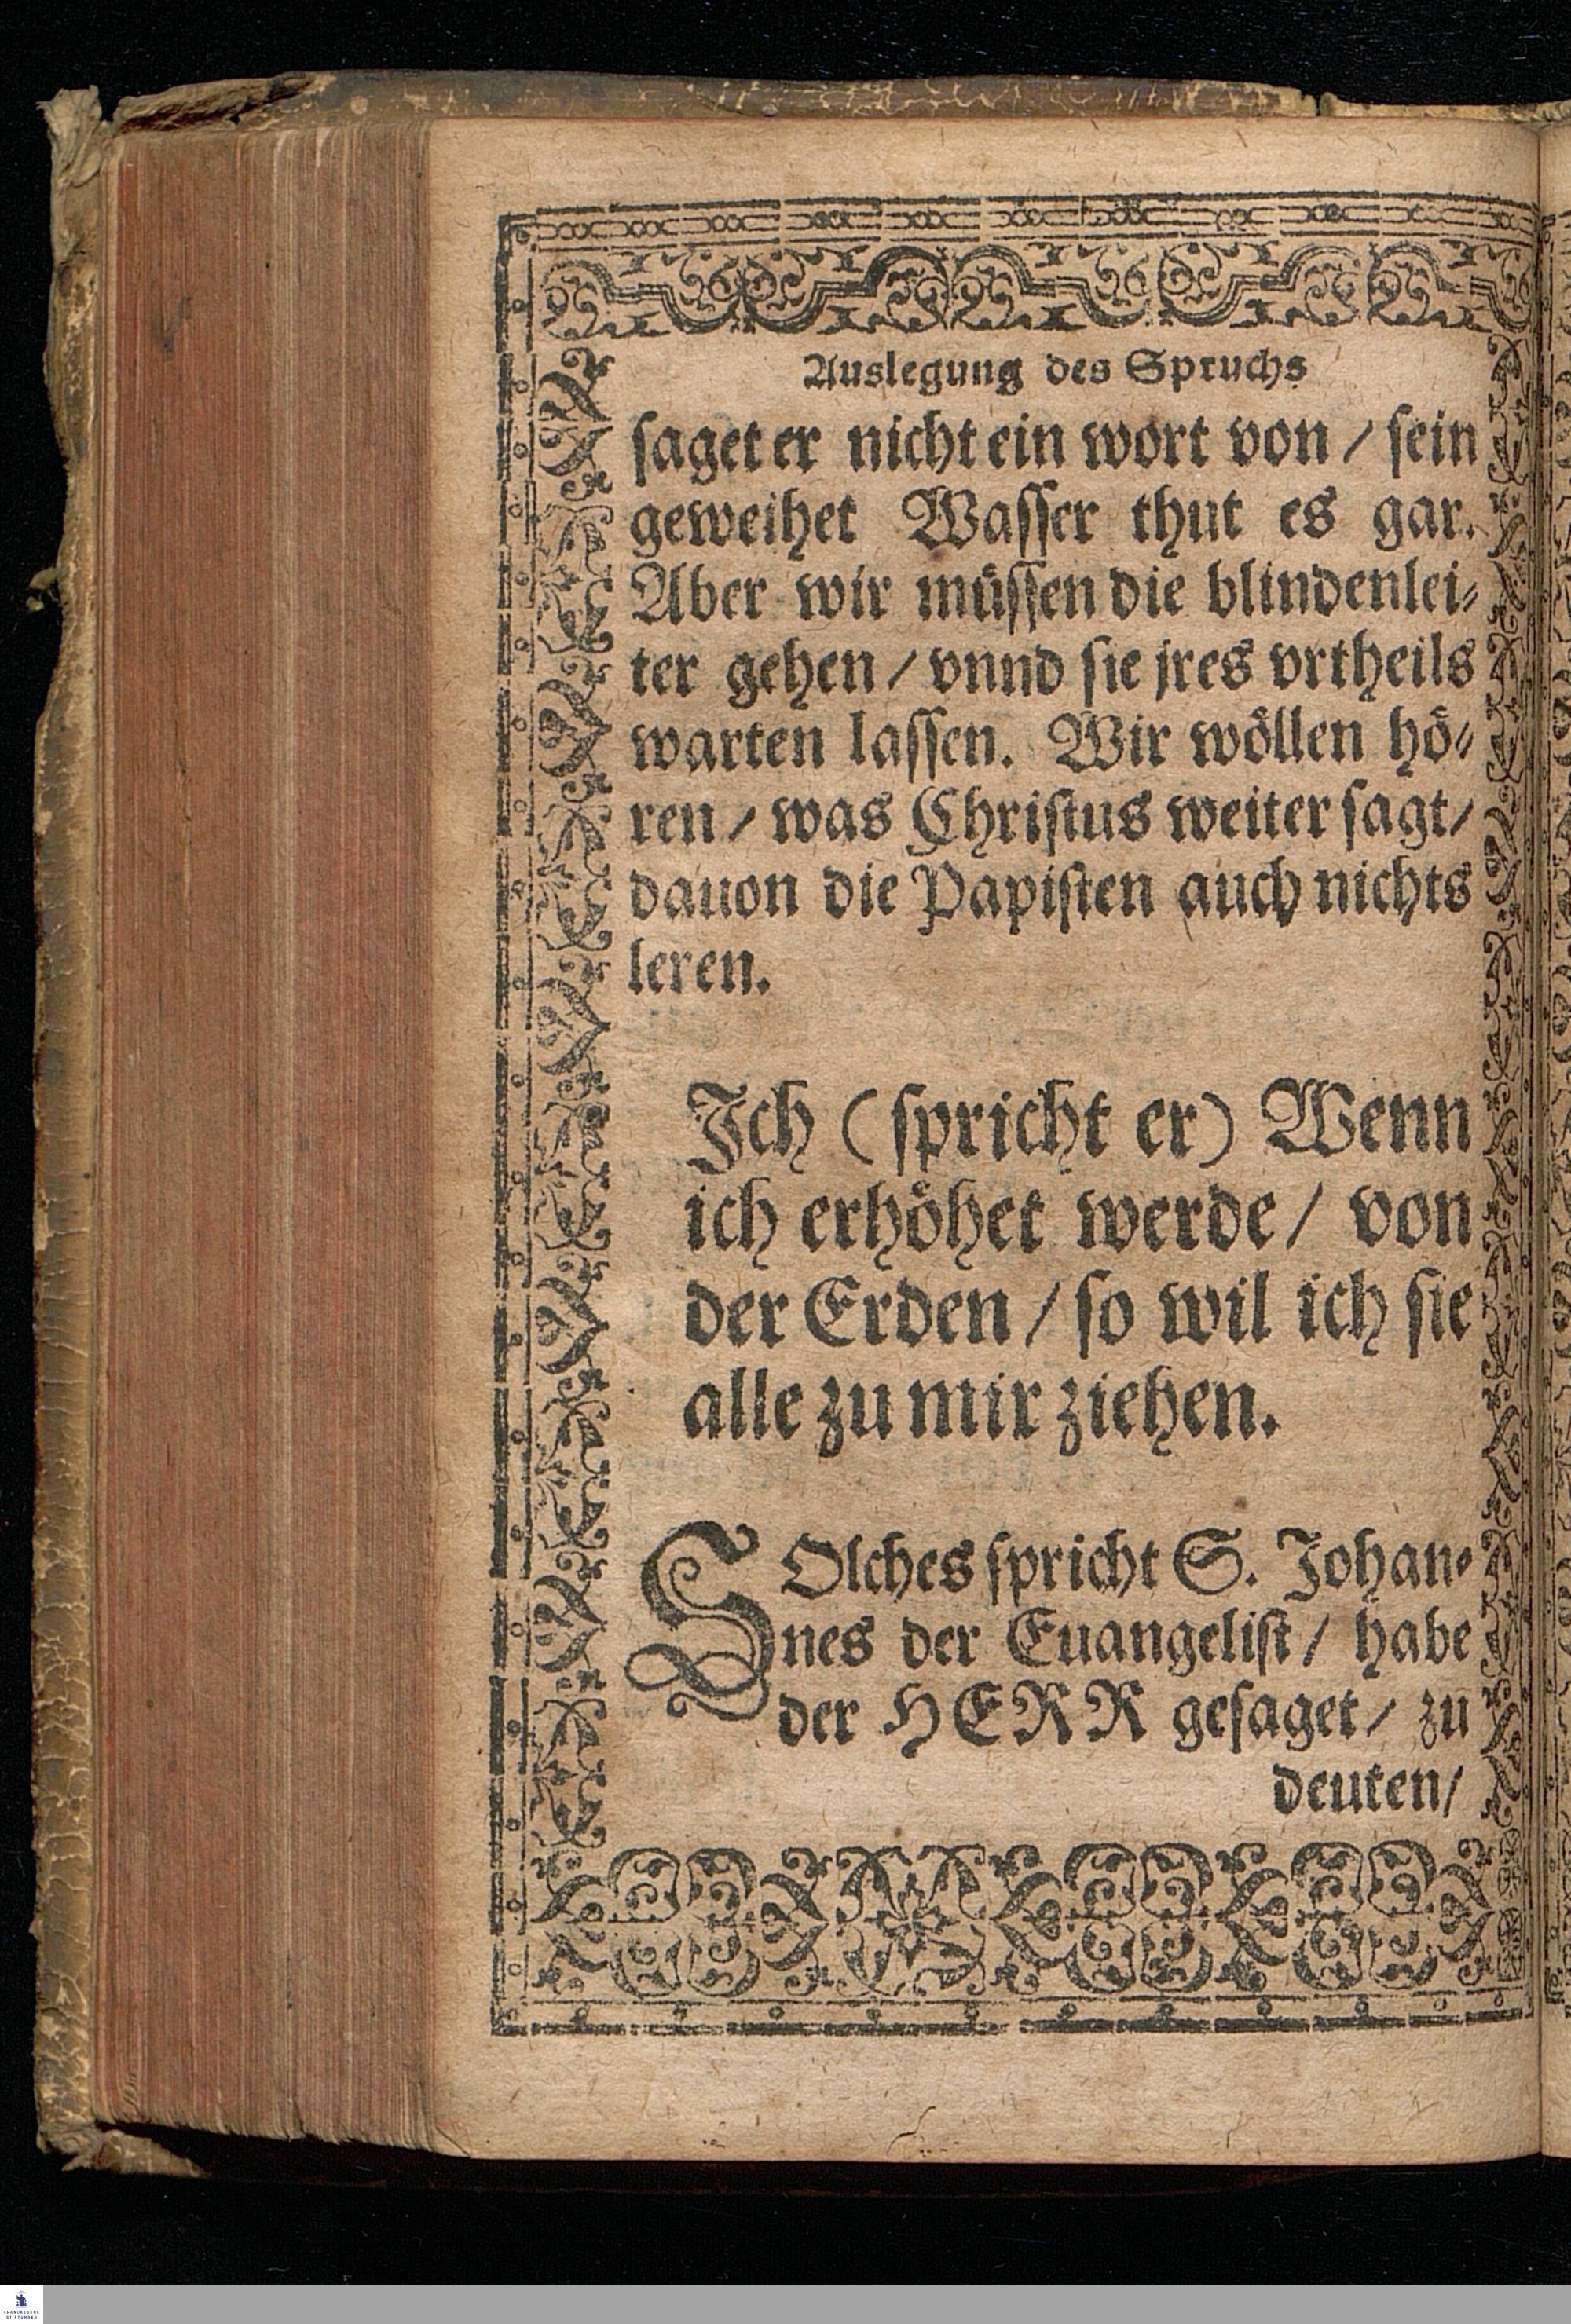 Auslegung des Spruchs
saget er nicht ein wort von / sein
geweihet Wasser thut es gar.
Aber wir müssen die blindenlei⸗
ter gehen / vnnd sie jres vrtheils
warten lassen. Wir wöllen hö⸗
ren / was Christus weiter sagt /
dauon die Papisten auch nichts
leren.
Ich (spricht er) Wenn
ich erhöhet werde / von
der Erden / so wil ich sie
alle zu mir ziehen.
SOlches spricht S. Johan⸗
nes der Euangelist / habe
der HERR gesaget / zu
deuten /
FRANCKESCHE
STIFTUNGEN